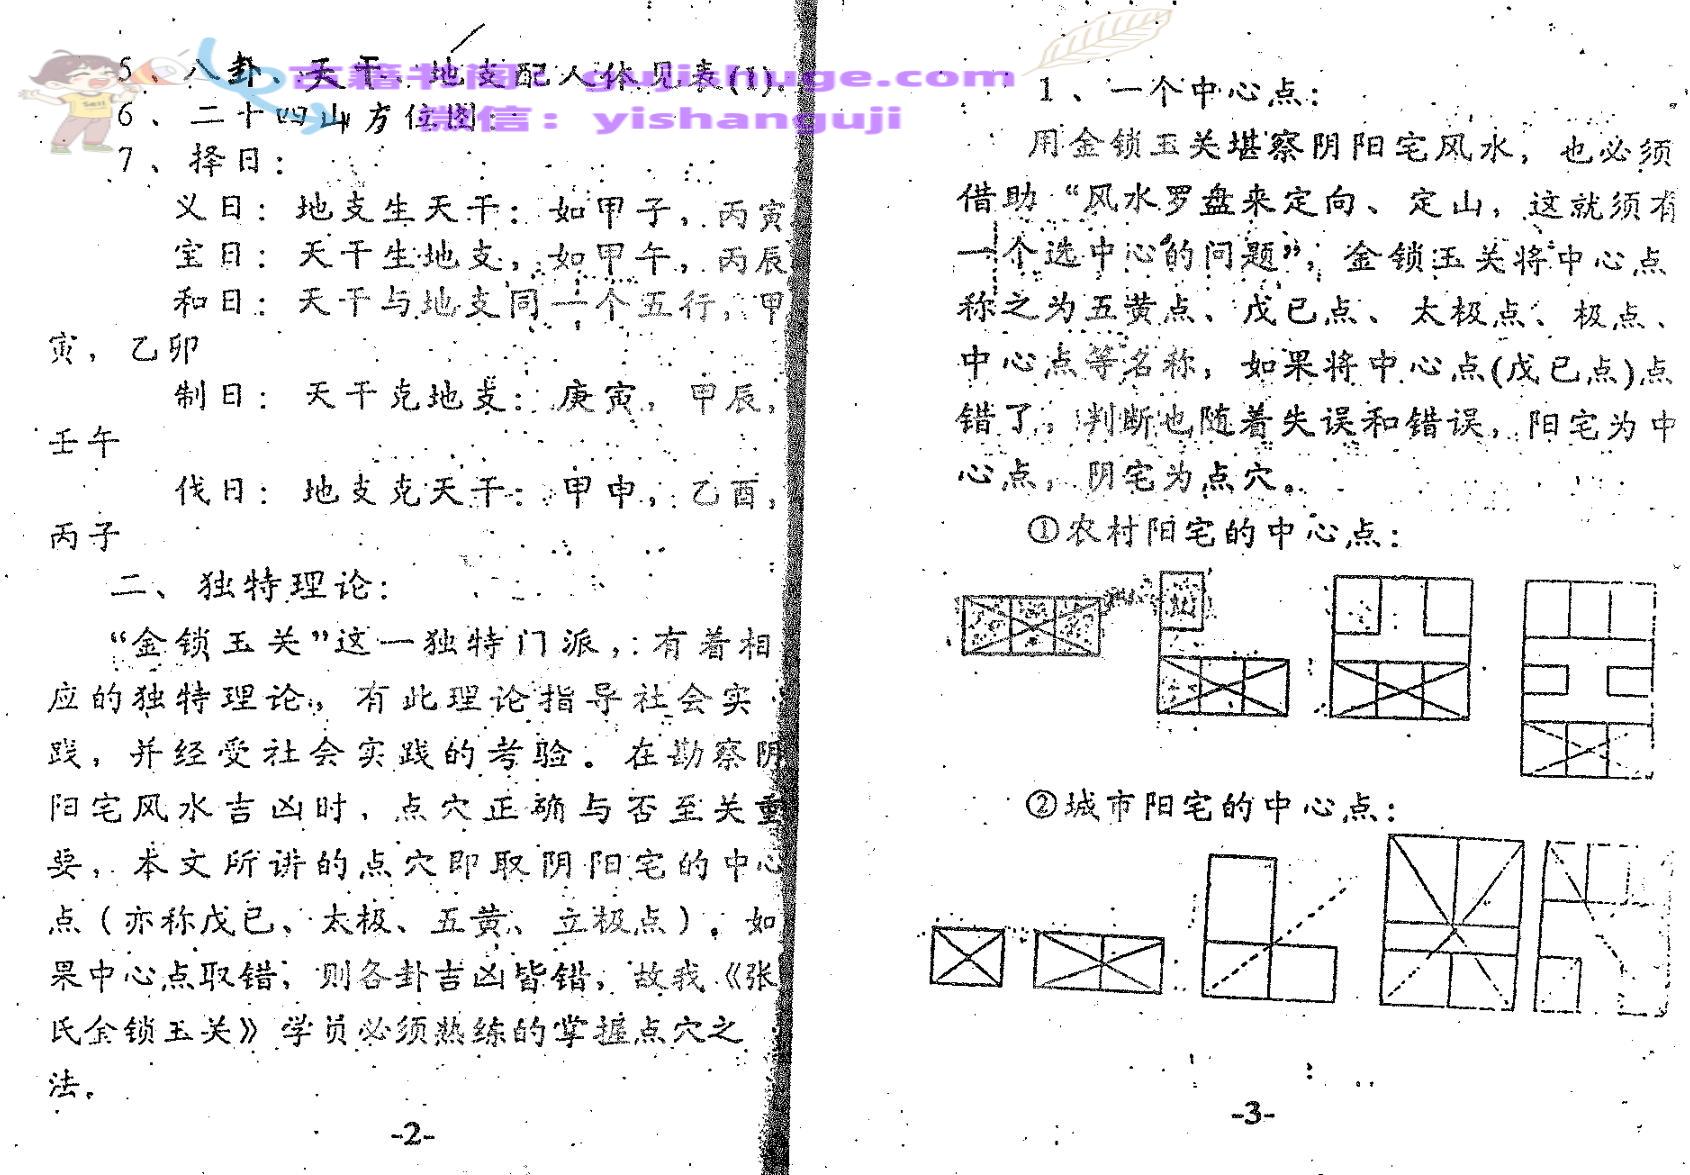 5、八卦、天干、地支配人体见表(1).
6、二十四山方位图:
7、择日:
义日: 地支生天干: 如甲子, 丙寅
宝日: 天干生地支, 如甲午, 丙辰
和日: 天干与地支同一个五行, 甲
寅, 乙卯
制日: 天干克地支: 庚寅, 甲辰,
壬午
伐日: 地支克天干: 甲申, 乙酉,
丙子
二、独特理论:
“金锁玉关”这一独特门派, 有着相
应的独特理论, 有此理论指导社会实
践, 并经受社会实践的考验。在勘察阴
阳宅风水吉凶时, 点穴正确与否至关重
要, 本文所讲的点穴即取阴阳宅的中心
点(亦称戊已、太极、五黄、立极点)。如
果中心点取错, 则各卦吉凶皆错, 故我《张
氏金锁玉关》学员必须熟练的掌握点穴之
法.
-2-
古籍书阁: gujishuge.com
微信: yishanguji
1、一个中心点:
用金锁玉关堪察阴阳宅风水, 也必须
借助“风水罗盘来定向、定山, 这就须有
一个选中心的问题”, 金锁玉关将中心点
称之为五黄点、戊已点、太极点、极点、
中心点等名称, 如果将中心点(戊已点)点
错了, 判断也随着失误和错误, 阳宅为中
心点, 阴宅为点穴。
①农村阳宅的中心点:
②城市阳宅的中心点:
-3-